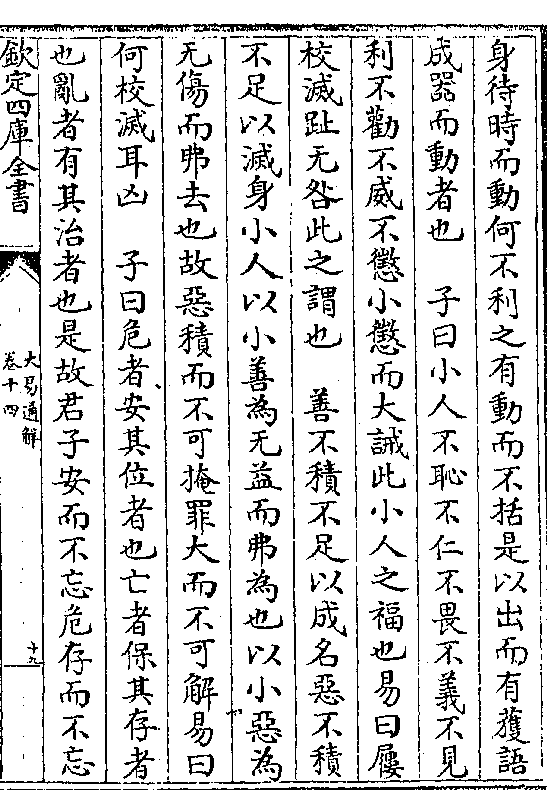 身待時而動何不利之有動而不括是以出而有䕶語
成器而動者也　子曰小人不恥不仁不畏不義不見
利不勸不威不懲小懲而大誡此小人之福也易曰屨
校滅趾无咎此之謂也　善不積不足以成名惡不積
不足以滅身小人以小善為无益而弗為也以小惡為
无傷而弗去也故惡積而不可掩罪大而不可解易曰
何校滅耳凶　子曰危者安其位者也亡者保其存者
也亂者有其治者也是故君子安而不忘危存而不忘
欽定四庫全書
大易通解
卷十四
十九